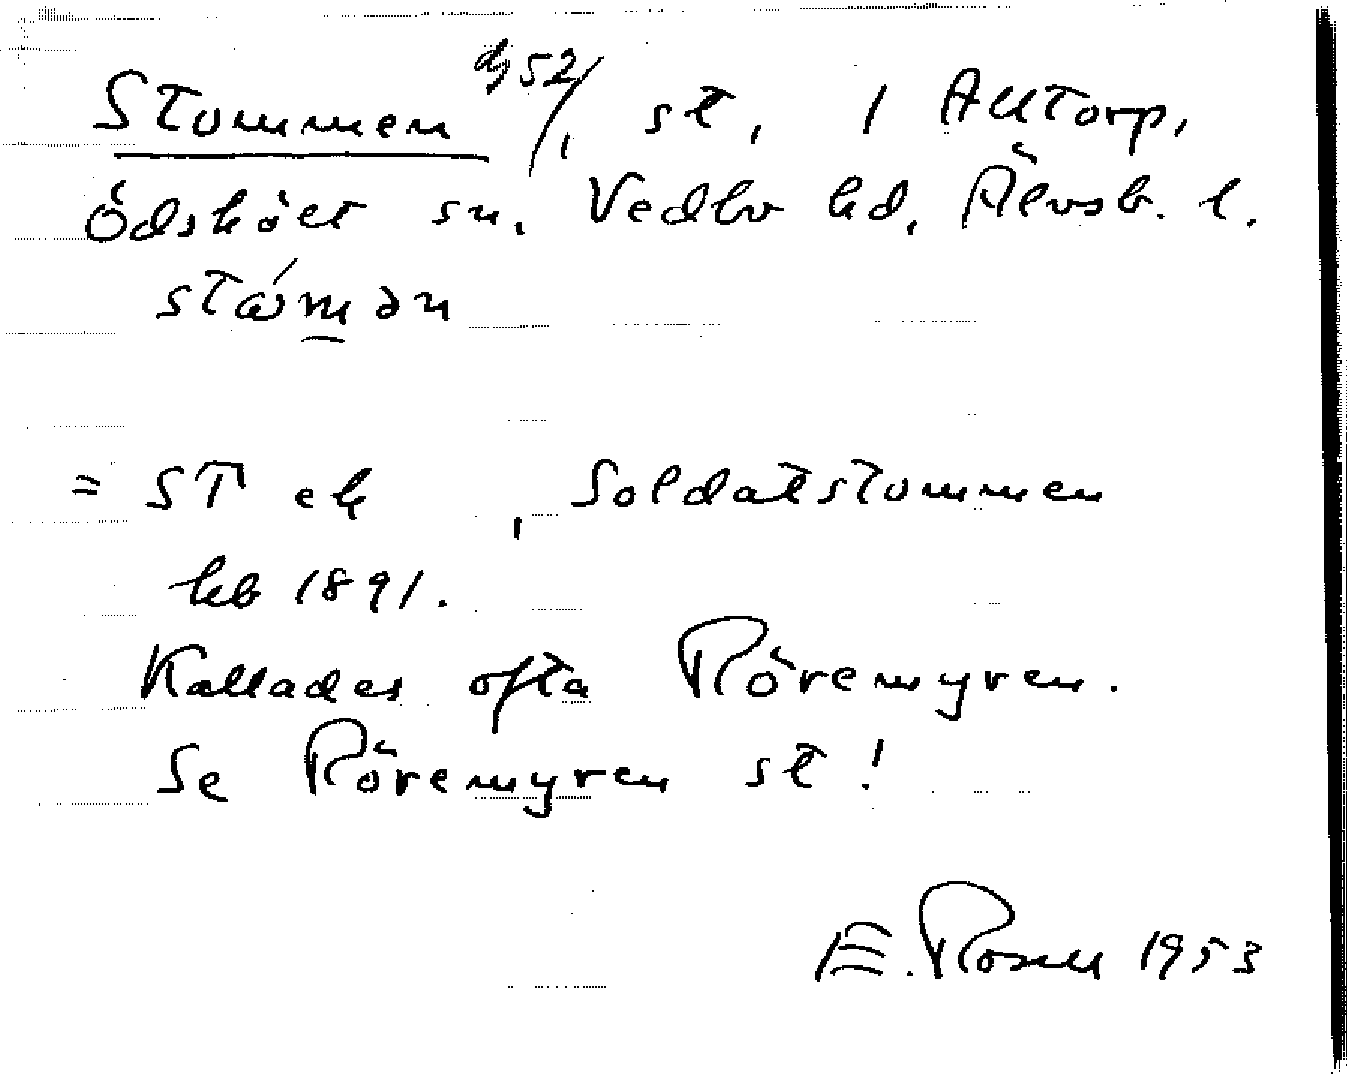 Stommen 52/, st, 1 Alltorp,
Ödskölt sn. Vedbo hd, Älvsb. l.
ståmən
= ST ek , Soldatstommen
hb 1891.
Kallades ofta Röremyren.
Se Röremyren st!
E. Rosell 1953